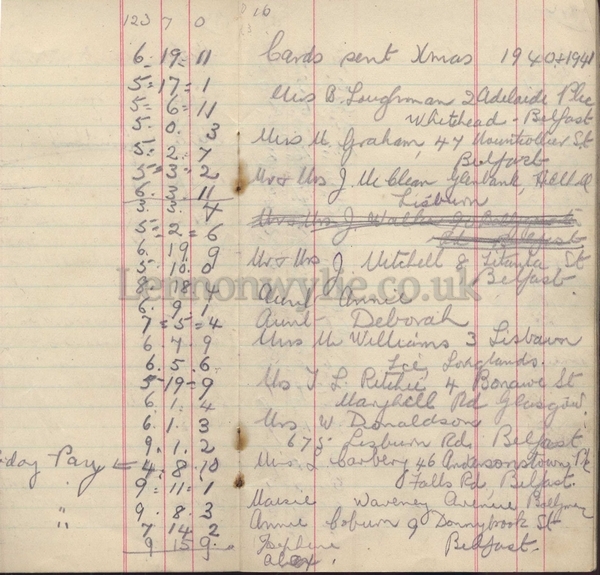 123 7 0
6 - 19 = 11
5 = 17 = 1
5 = 6 = 11
5. 0. 3
5 = 2 = 7
5 = 3 = 2
6. 3. 11
3. 3. 4
5 = 2 = 6
6. 19. 9
5. 10. 0
8. 18. 4
6. 9. 1
7 = 5 = 4
6 7 9
6. 5. 6
5 - 19 = 9
6. 1. 4
6. 1. 3
9. 1. 2
day Pay 4. 8. 10
9 = 11 = 1
" 9. 8. 3
" 7 14 2
9 15 9
16
Cards sent Xmas 1940 & 1941
Miss B. Loughman 2 Adelaide Plc
Whitehead - Belfast
Miss M. Graham, 47 Mountcollier St
Belfast
Mr & Mrs J. McClean Glenbank, Hillhall
Lisburn
Mr & Mrs J. Walker
Belfast
Mr & Mrs J. Mitchell 8 Titania St
Belfast
Aunt Annie
Aunt Deborah
Miss M Williams 3 Lisbawn
Longlands.
Ms T L. Ritchie 4 Bonawe St
Maryhill Rd Glasgow.
Mrs. W. Donaldson
675 Lisburn Rd, Belfast
Mrs. L Carbery 46 Andersonstown Pk
Falls Rd, Belfast.
Maisie Waveney Avenue Ballymena
Annie Coburn 9 Donnybrook St
Belfast.
Josephine
Alex.
Lennonwylie.co.uk